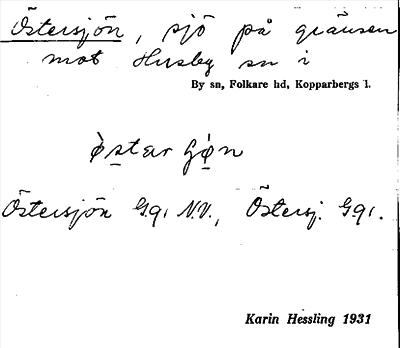 Östersjön, sjö på gränsen
mot Husby sn i
By sn, Folkare hd, Kopparbergs l.
ø̀star gǿ̣n
Östersjön G.91 N.V., Östersj. G.91.
Karin Hessling 1931